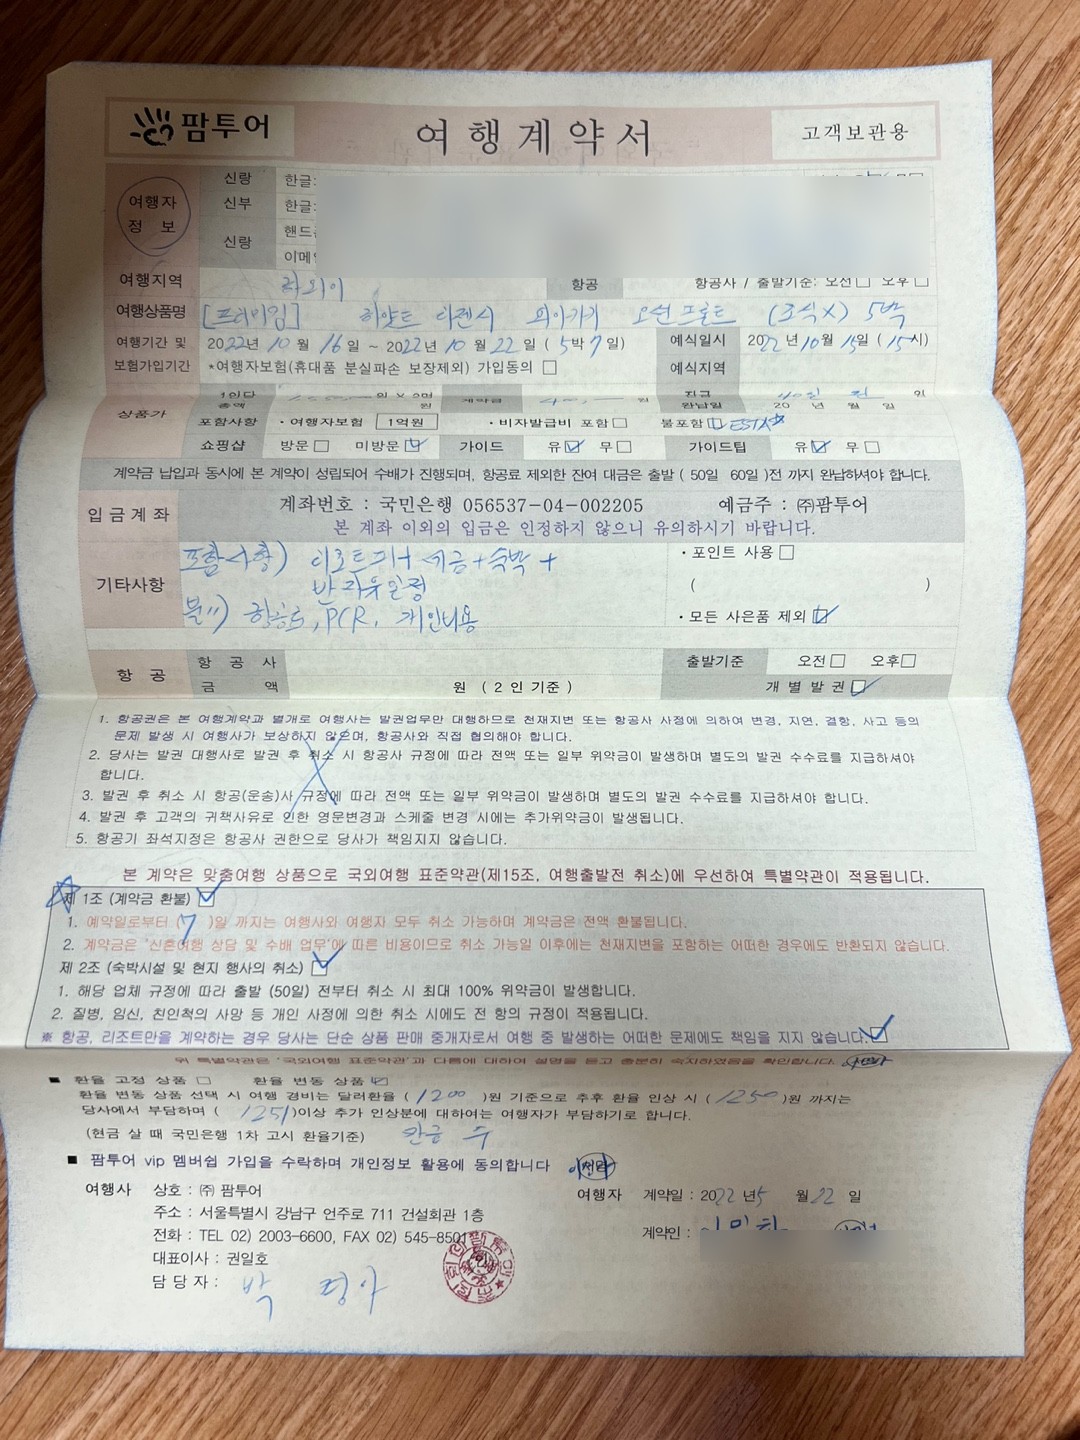 팜투어 여행계약서 고객보관용
여행자 정보
신랑 한글:
신부 한글:
신랑 핸드
이메
여행지역 하와이 항공 항공사 / 출발기준: 오전□ 오후□
여행상품명 [프리미엄] 하얏트 리젠시 와이키키 오션프론트 (조식X) 5박
여행기간 및 2022년 10월 16일 ~ 2022년 10월 22일 (5박7일) 예식일시 2022년 10월 15일 (15시)
보험가입기간 *여행자보험(휴대품 분실파손 보장제외) 가입동의 □ 예식지역
상품가 1인당 총액 원 X 2명 원 계약금 원 잔금 완납일 20 년 월 일
포함사항 · 여행자보험 1억원 · 비자발급비 포함□ 불포함☑ ESTA
쇼핑샵 방문□ 미방문☑ 가이드 유☑ 무□ 가이드팁 유☑ 무□
계약금 납입과 동시에 본 계약이 성립되어 수배가 진행되며, 항공료 제외한 잔여 대금은 출발 ( 50일 60일 )전 까지 완납하셔야 합니다.
입금계좌 계좌번호 : 국민은행 056537-04-002205 예금주 : ㈜팜투어
본 계좌 이외의 입금은 인정하지 않으니 유의하시기 바랍니다.
기타사항
포함사항) 리조트피+세금+숙박+
반자유일정
불〃) 항공료, PCR, 개인비용
· 포인트 사용□
( )
· 모든 사은품 제외☑
항공 항공사 출발기준 오전□ 오후□
금액 원 (2인기준) 개별발권☑
1. 항공권은 본 여행계약과 별개로 여행사는 발권업무만 대행하므로 천재지변 또는 항공사 사정에 의하여 변경, 지연, 결항, 사고 등의
문제 발생 시 여행사가 보상하지 않으며, 항공사와 직접 협의해야 합니다.
2. 당사는 발권 대행사로 발권 후 취소 시 항공사 규정에 따라 전액 또는 일부 위약금이 발생하며 별도의 발권 수수료를 지급하셔야
합니다.
3. 발권 후 취소 시 항공(운송)사 규정에 따라 전액 또는 일부 위약금이 발생하며 별도의 발권 수수료를 지급하셔야 합니다.
4. 발권 후 고객의 귀책사유로 인한 영문변경과 스케줄 변경 시에는 추가위약금이 발생됩니다.
5. 항공기 좌석지정은 항공사 권한으로 당사가 책임지지 않습니다.
본 계약은 맞춤여행 상품으로 국외여행 표준약관(제15조, 여행출발전 취소)에 우선하여 특별약관이 적용됩니다.
제 1조 (계약금 환불) ☑
1. 예약일로부터 ( 7 )일 까지는 여행사와 여행자 모두 취소 가능하며 계약금은 전액 환불됩니다.
2. 계약금은 '신혼여행 상담 및 수배 업무'에 따른 비용이므로 취소 가능일 이후에는 천재지변을 포함하는 어떠한 경우에도 반환되지 않습니다.
제 2조 (숙박시설 및 현지 행사의 취소) ☑
1. 해당 업체 규정에 따라 출발 (50일) 전부터 취소 시 최대 100% 위약금이 발생합니다.
2. 질병, 임신, 친인척의 사망 등 개인 사정에 의한 취소 시에도 전 항의 규정이 적용됩니다.
※ 항공, 리조트만을 계약하는 경우 당사는 단순 상품 판매 중개자로서 여행 중 발생하는 어떠한 문제에도 책임을 지지 않습니다.☑
위 특별약관은 '국외여행 표준약관'과 다름에 대하여 설명을 듣고 충분히 숙지하였음을 확인합니다.
■ 환율 고정 상품 □ 환율 변동 상품☑
환율 변동 상품 선택 시 여행 경비는 달러환율 ( 1200 )원 기준으로 추후 환율 인상 시 ( 1250 )원 까지는
당사에서 부담하며 ( 1251 )이상 추가 인상분에 대하여는 여행자가 부담하기로 합니다.
(현금 살 때 국민은행 1차 고시 환율기준) 완금 수
■ 팜투어 vip 멤버쉽 가입을 수락하며 개인정보 활용에 동의합니다
여행사 상호 : ㈜ 팜투어 여행자 계약일 : 2022년 5월 22일
주소 : 서울특별시 강남구 언주로 711 건설회관 1층
전화 : TEL 02) 2003-6600, FAX 02) 545-8501 계약인 :
대표이사 : 권일호
담당자 : 박정아